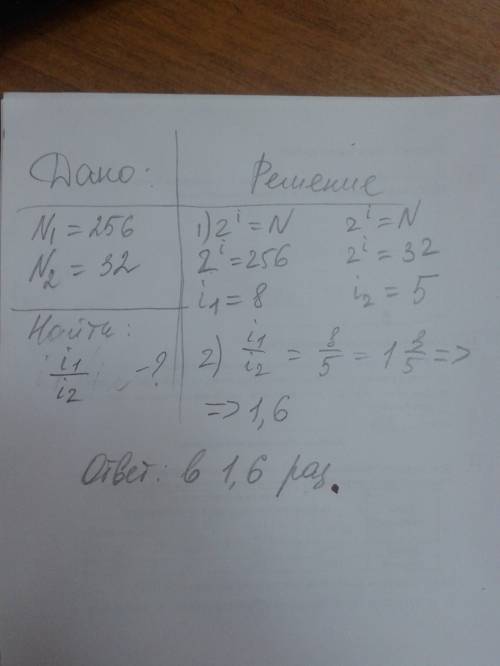 Дано:
N₁ = 256
N₂ = 32
Найти:
i₁/i₂ -?
Решение
1) 2ⁱ = N 2ⁱ = N
2ⁱ = 256 2ⁱ = 32
i₁ = 8 i₂ = 5
2) i₁/i₂ = 8/5 = 1 3/5 =>
=> 1,6
Ответ: в 1,6 раз.